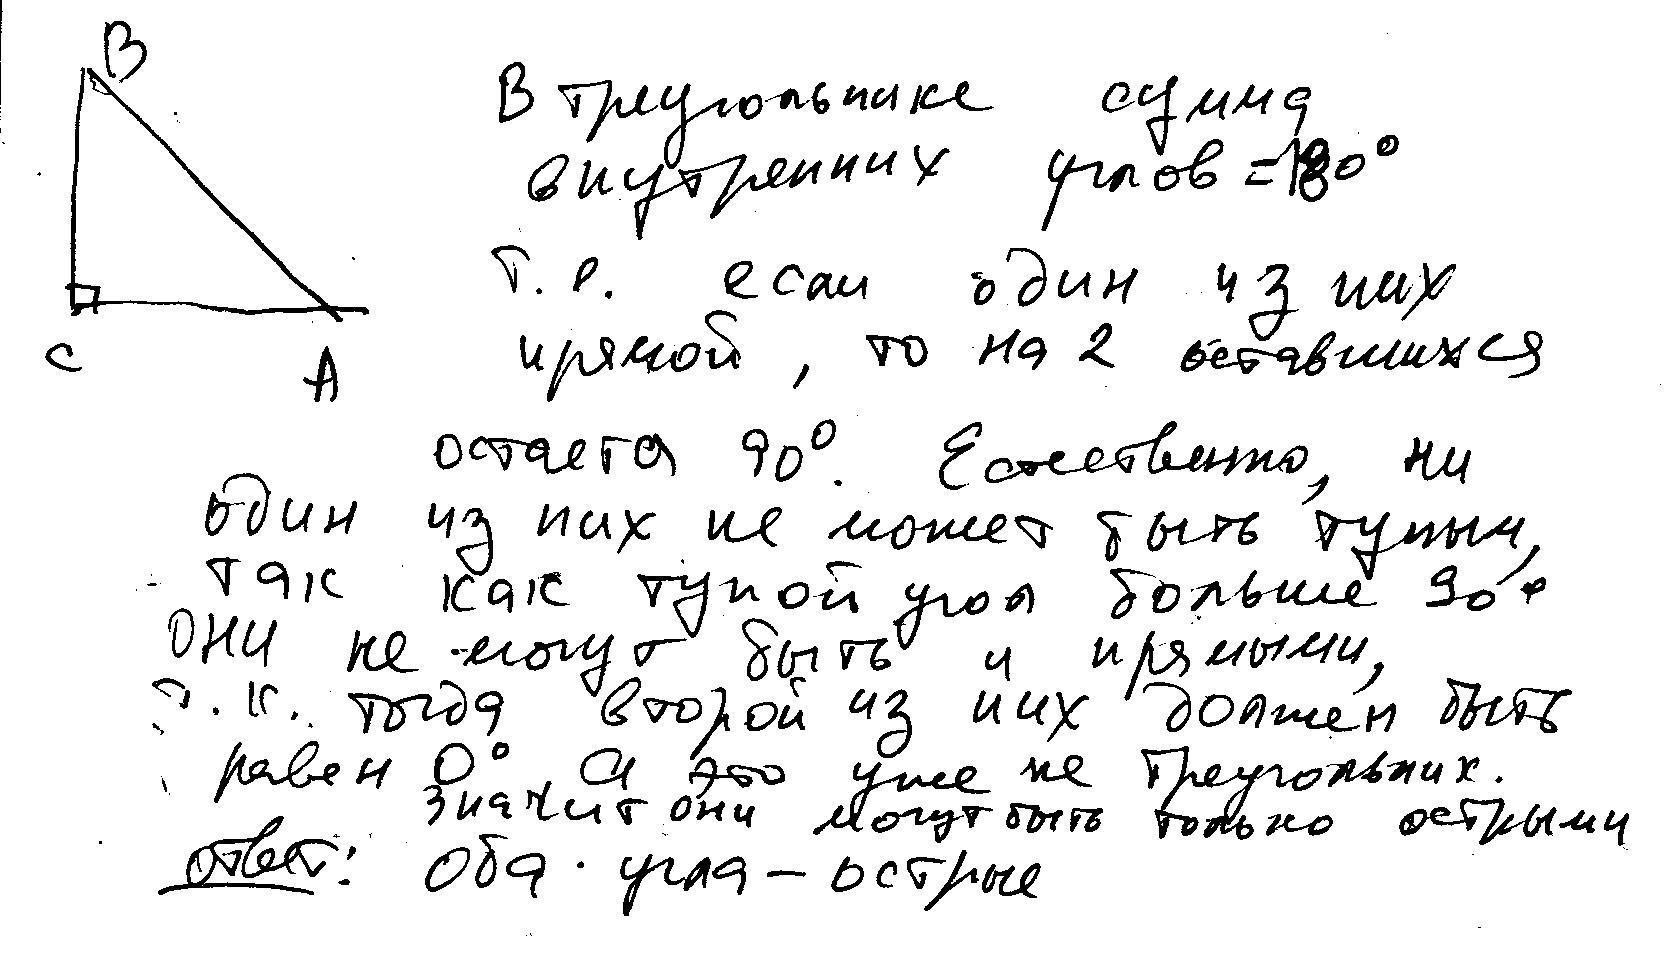 В
В треугольнике сумма
внутренних углов =180°
Т.е. если один из них
прямой, то на 2 оставшихся
С
А
остается 90°. Естественно, ни
один из них не может быть тупым,
так как тупой угол больше 90°
они не могут быть и прямыми,
т.к. тогда второй из них должен быть
равен 0° а это уже не треугольник.
значит они могут быть только острыми
ответ: Оба угла – острые